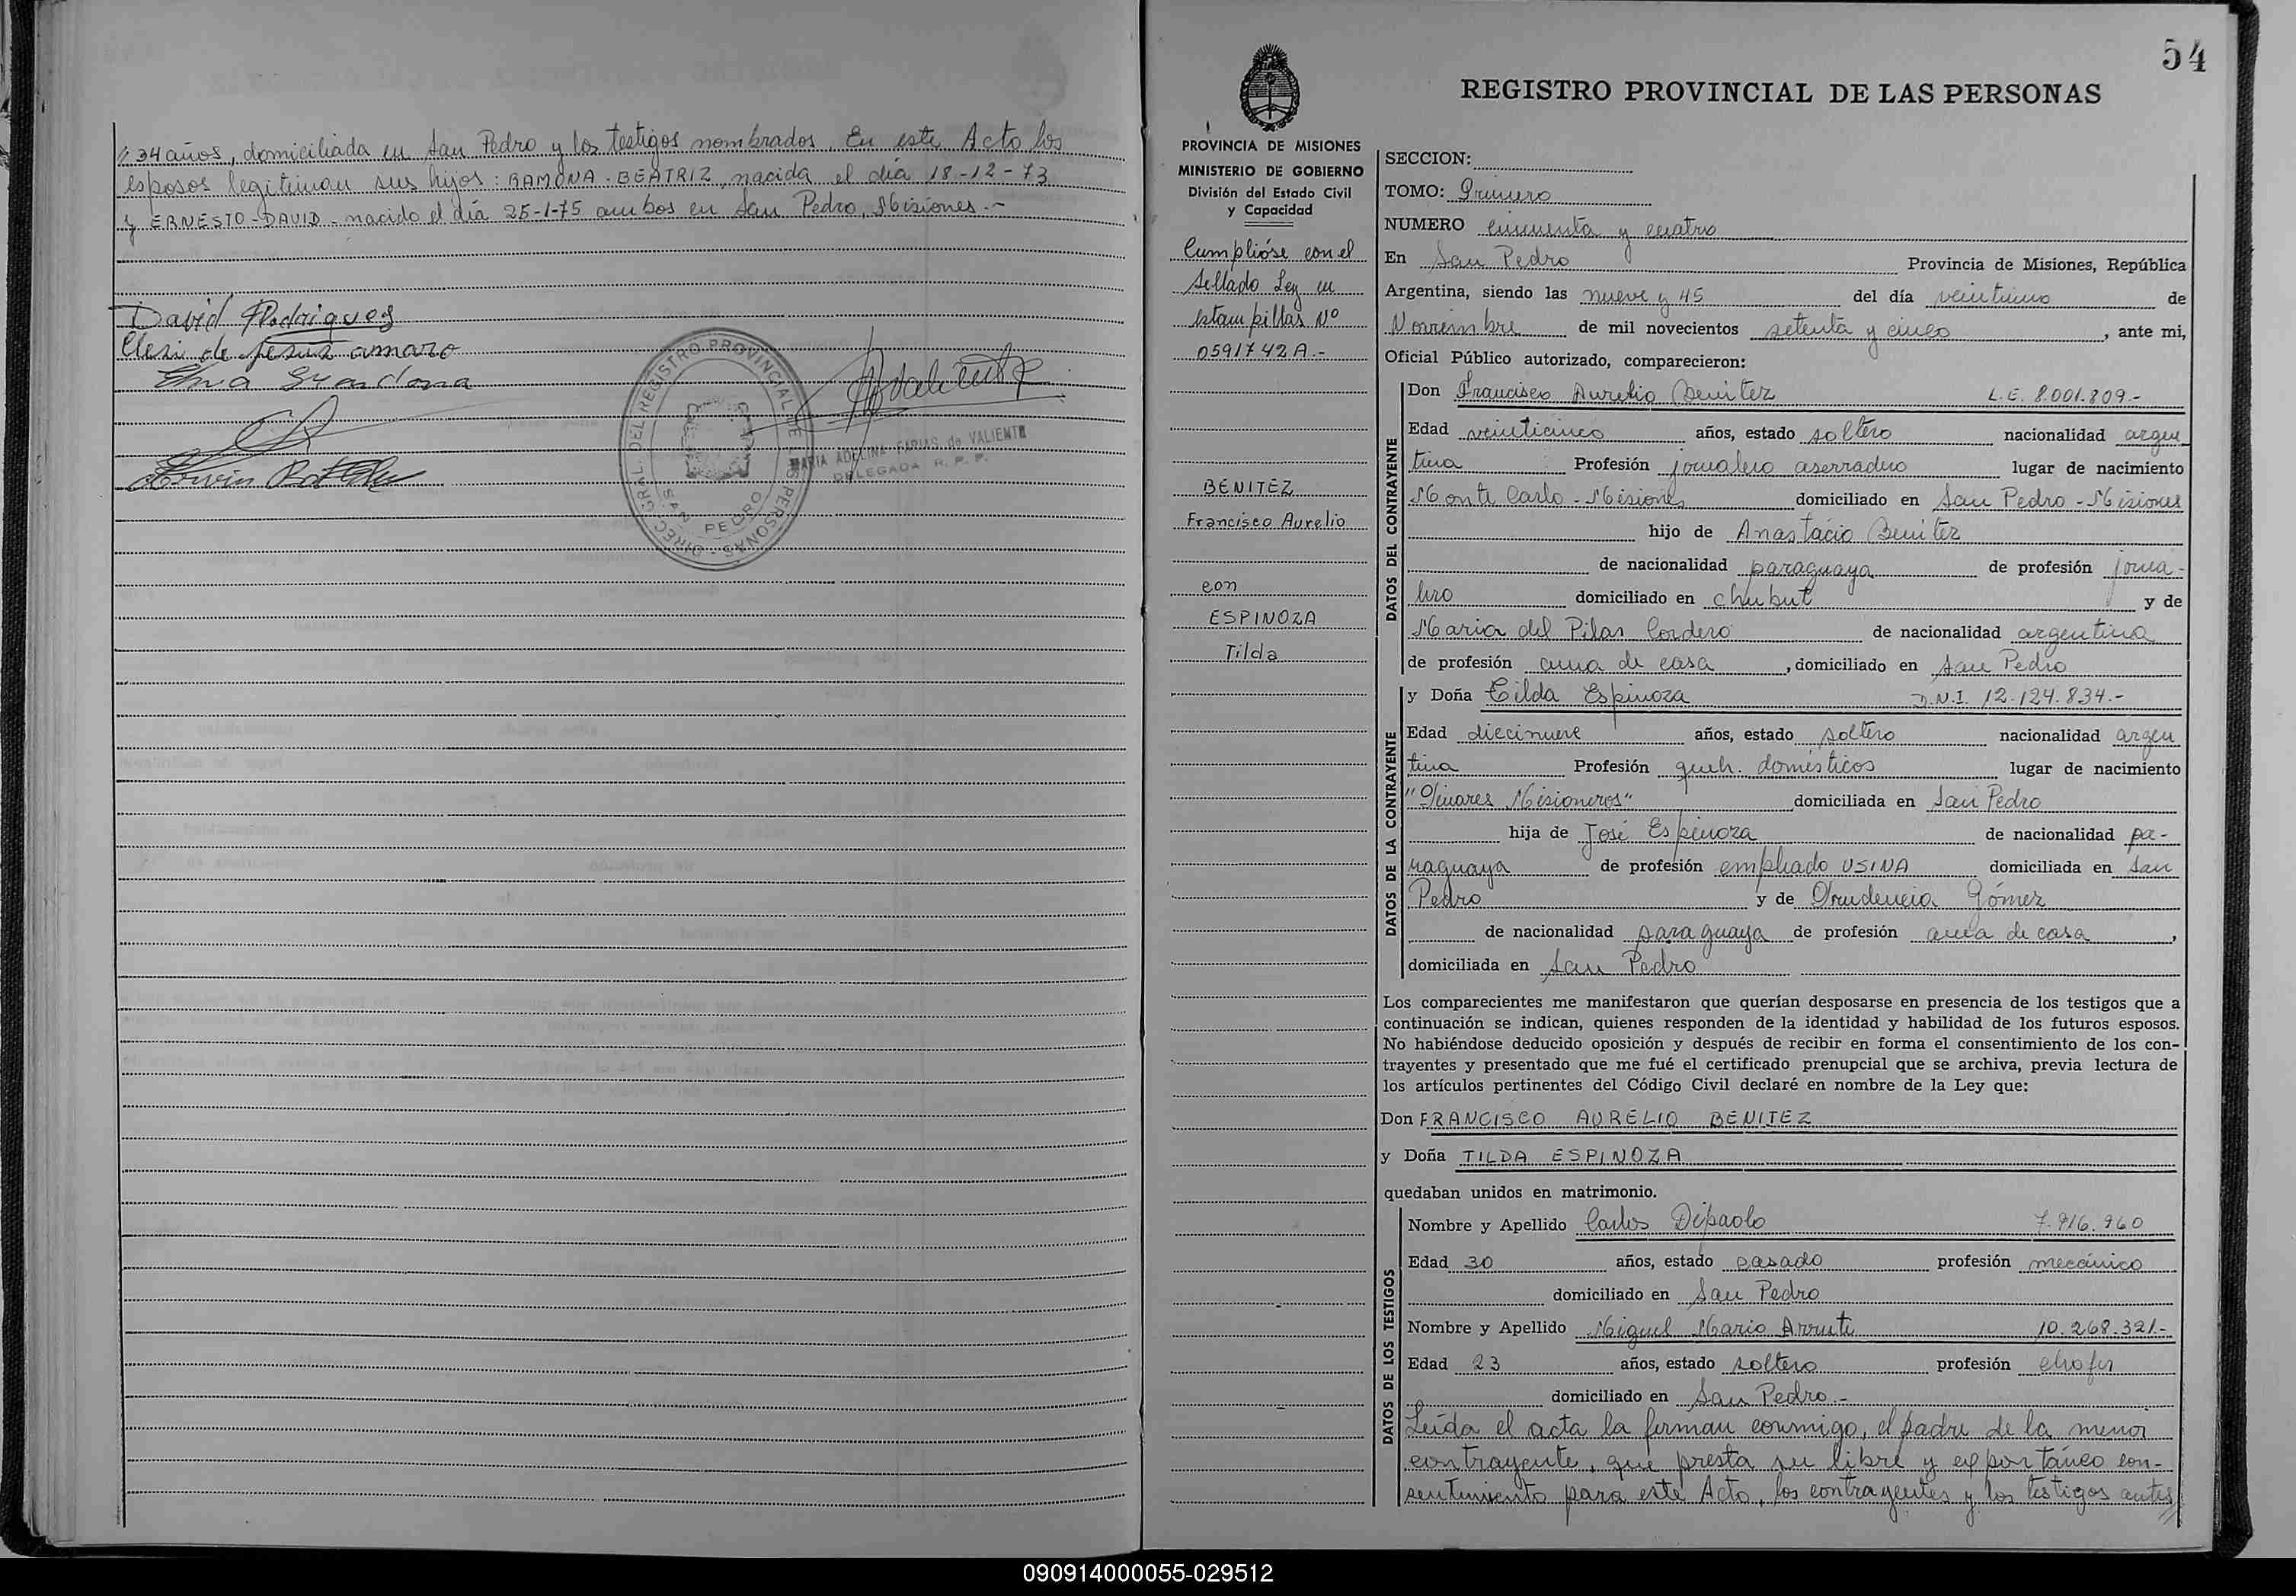 // 34 años, domiciliada en San Pedro y los testigos nombrados. En este Acto los
esposos legitiman sus hijos: RAMONA-BEATRIZ, nacida el día 18-12-73
y ERNESTO-DAVID- nacido el día 25-1-75 ambos en San Pedro, Misiones.-
David Rodrigues
Cleri de Jesus amaro
DIREC. GRAL. DEL REGISTRO PROVINCIAL DE PERSONAS
SAN PEDRO
MARIA ADELINA FARIAS de VALIENTE
DELEGADA R. P. P.
54
REGISTRO PROVINCIAL DE LAS PERSONAS
PROVINCIA DE MISIONES
MINISTERIO DE GOBIERNO
División del Estado Civil
y Capacidad
Cumplióse con el
Sellado Ley en
Estampillas Nº
0591742A.-
BENITEZ
Francisco Aurelio
con
ESPINOZA
Tilda
SECCION:
TOMO: Primero
NUMERO cincuenta y cuatro
En San Pedro Provincia de Misiones, República
Argentina, siendo las nueve y 45 del día veintiuno de
Noviembre de mil novecientos setenta y cinco, ante mi,
Oficial Público autorizado, comparecieron:
DATOS DEL CONTRAYENTE
Don Francisco Aurelio Benitez L.E. 8.001.809.-
Edad veinticinco años, estado soltero nacionalidad argen
tina Profesión jornalero aserradero lugar de nacimiento
Monte Carlo - Misiones domiciliado en San Pedro - Misiones
hijo de Anastacio Benitez
de nacionalidad paraguaya de profesión jorna-
lero domiciliado en chubut y de
Maria del Pilar Cordero de nacionalidad argentina
de profesión ama de casa, domiciliado en San Pedro
DATOS DE LA CONTRAYENTE
y Doña Tilda Espinoza D.N.I. 12.124.834.-
Edad diecinueve años, estado soltero nacionalidad argen
tina Profesión queh. domésticos lugar de nacimiento
"Pinares Misioneros" domiciliada en San Pedro
hija de José Espinoza de nacionalidad pa-
raguaya de profesión empleado USINA domiciliada en San
Pedro y de Prudencia Gómez
de nacionalidad paraguaya de profesión ama de casa,
domiciliada en San Pedro
Los comparecientes me manifestaron que querían desposarse en presencia de los testigos que a
continuación se indican, quienes responden de la identidad y habilidad de los futuros esposos.
No habiéndose deducido oposición y después de recibir en forma el consentimiento de los con-
trayentes y presentado que me fué el certificado prenupcial que se archiva, previa lectura de
los artículos pertinentes del Código Civil declaré en nombre de la Ley que:
Don FRANCISCO AURELIO BENITEZ
y Doña TILDA ESPINOZA
quedaban unidos en matrimonio.
DATOS DE LOS TESTIGOS
Nombre y Apellido Carlos Dipaolo 7.916.960
Edad 30 años, estado casado profesión mecánico
domiciliado en San Pedro
Nombre y Apellido Miguel Mario Arruti 10.268.321-
Edad 23 años, estado soltero profesión chofer
domiciliado en San Pedro.-
Leída el acta la firman conmigo, el padre de la menor
contrayente, que presta su libre y expontáneo con-
sentimiento para este Acto, los contrayentes y los testigos antes//
090914000055-029512